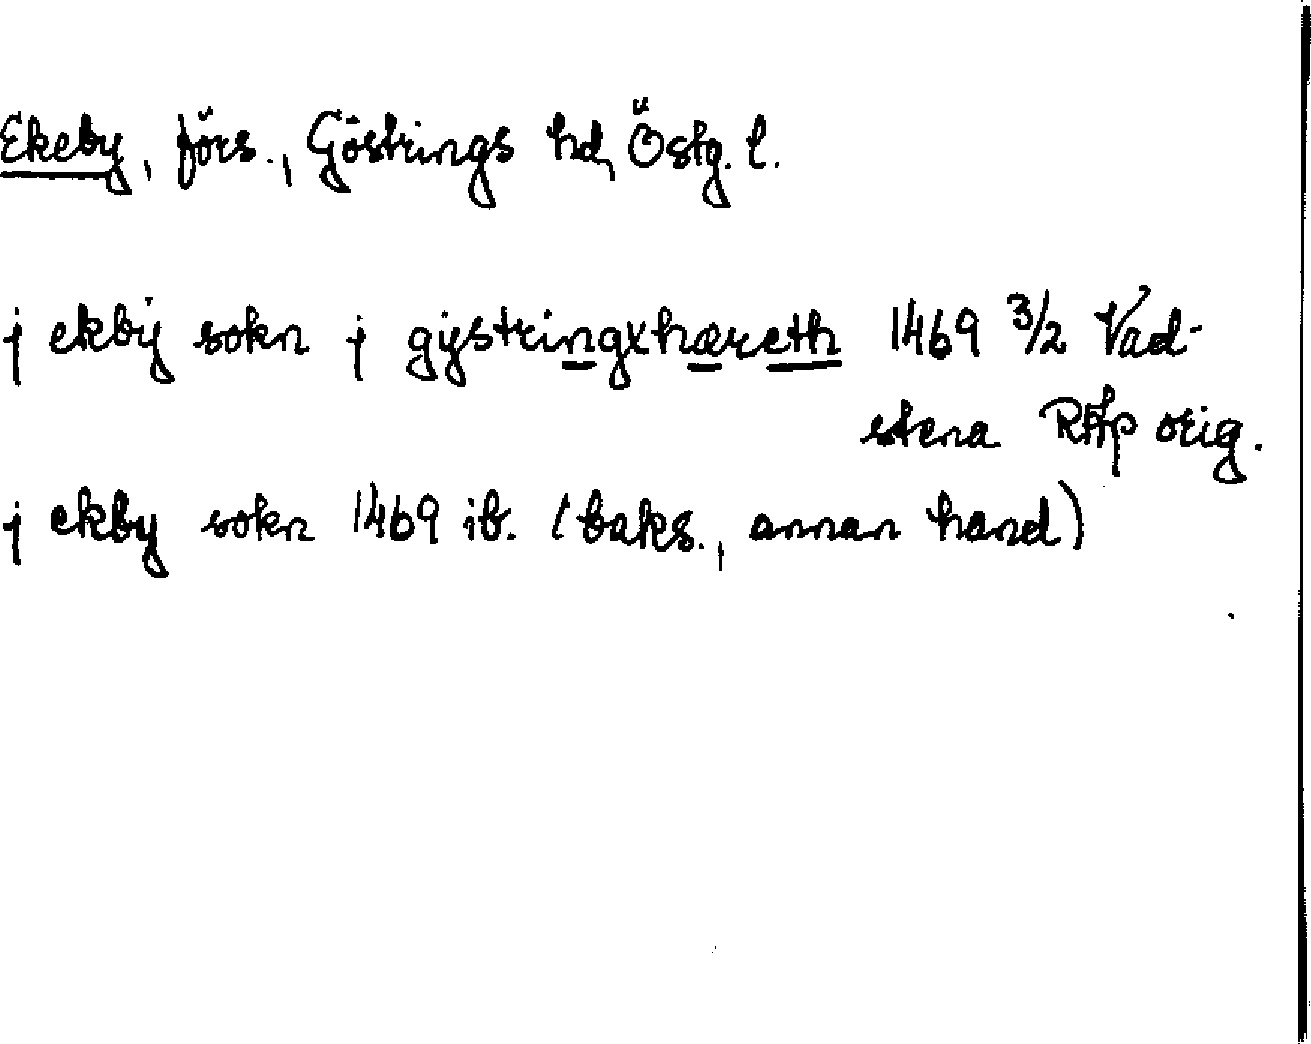 Ekeby, förs., Göstrings hd, Östg. l.
j ekbÿ sokn j gÿstringxhæreth 1469 3/2 Vad-
stena RAp orig.
j ekby sokn 1469 ib. (baks., annan hand)